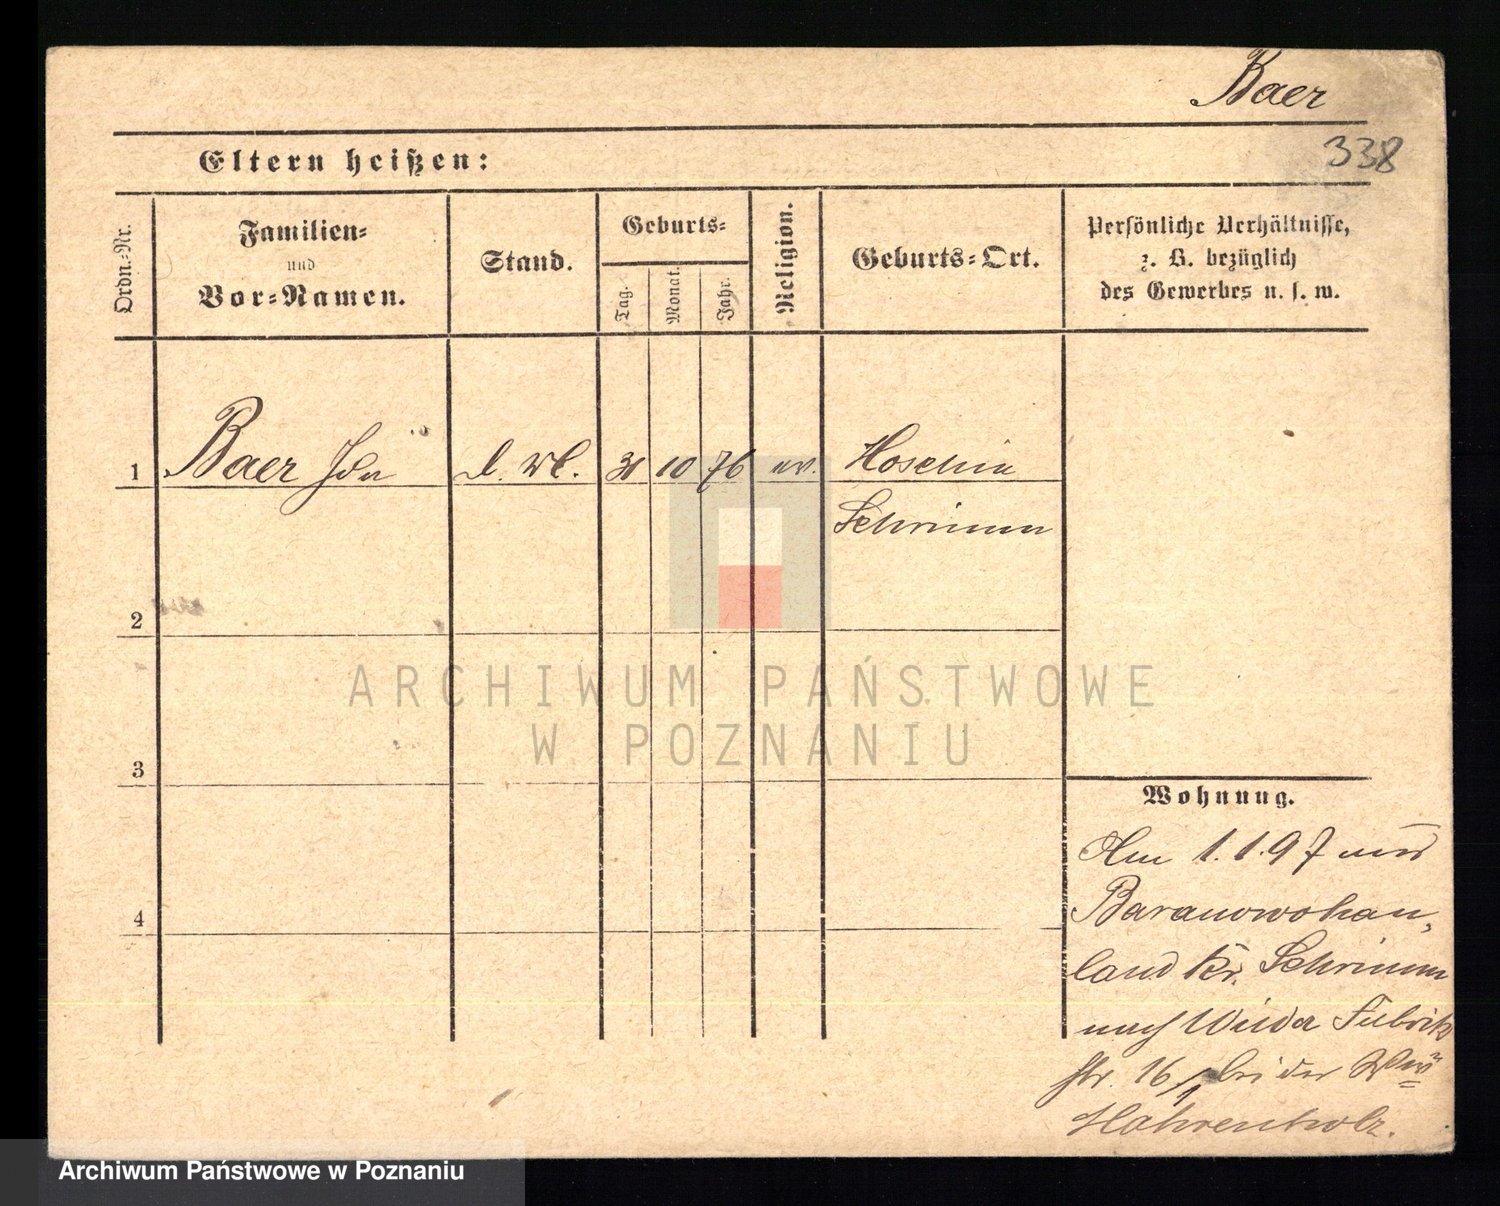 Baer
338
Eltern heißen:
Ordn.-Nr.
Familien-
und
Vor-Namen.
Stand.
Geburts-
Tag.
Monat.
Jahr.
Religion.
Geburts-Ort.
Persönliche Verhältnisse,
z. B. bezüglich
des Gewerbes u. s. w.
1 Baer Ida d. wl. 31 10 76 ev. Hoschin
Schrimm
2
3
4
Wohnung.
Am 1.1.97 aus
Baranowohau-
land Kr. Schrimm
nach Wilda Fabrik
str. 16/1 bei der Ww
Hahrenholz.
ARCHIWUM PAŃSTWOWE
W POZNANIU
Archiwum Państwowe w Poznaniu